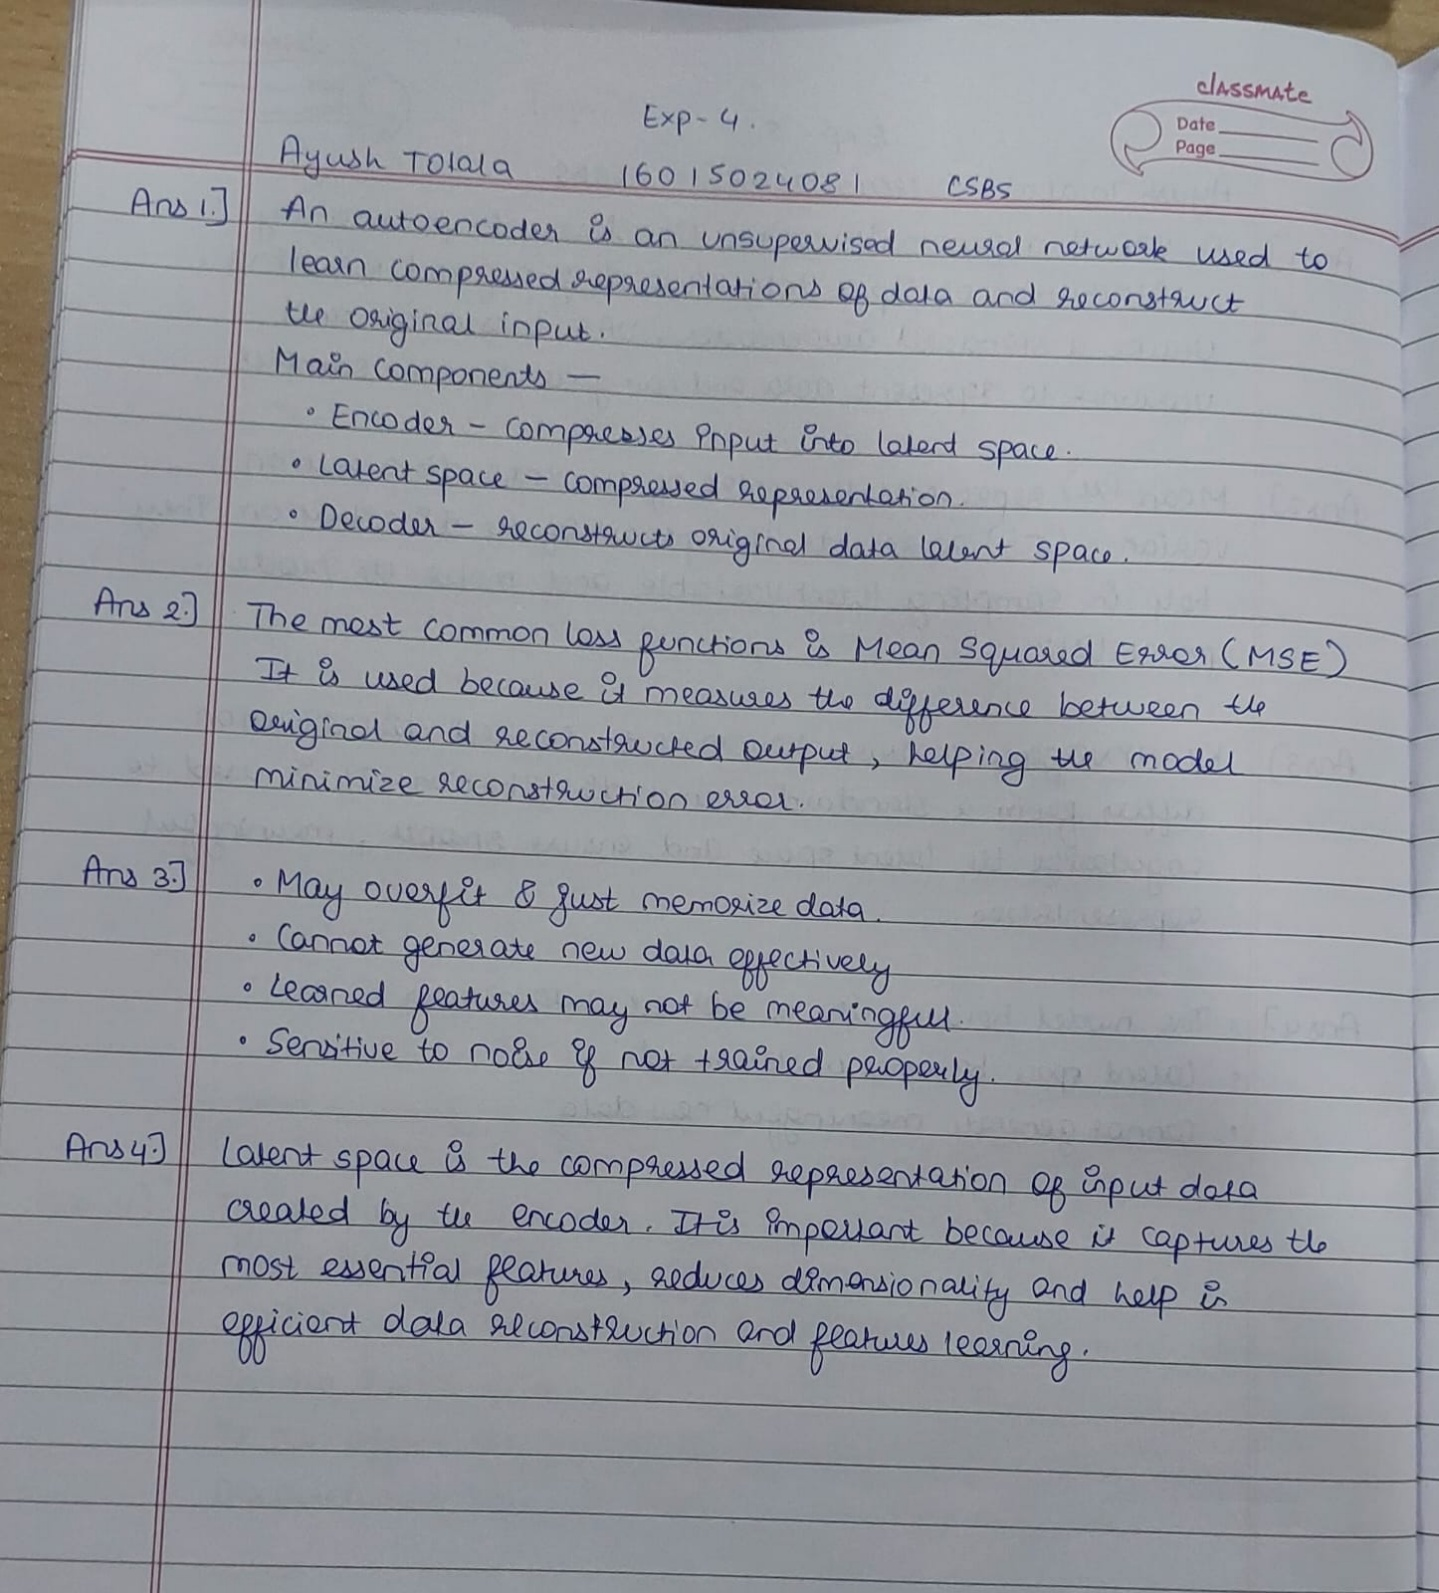 classmate
Date
Page
Exp-4.
Ayush Tolala 16015024081 CSBS
Ans 1.] An autoencoder is an unsupervised neural network used to
learn compressed representations of data and reconstruct
the original input.
Main components —
• Encoder - compresses input into latent space.
• Latent space - compressed representation.
• Decoder - reconstructs original data latent space.
Ans 2.] The most common loss functions is Mean Squared Error (MSE)
It is used because it measures the difference between the
original and reconstructed output, helping the model
minimize reconstruction error.
Ans 3.] • May overfit & just memorize data.
• Cannot generate new data effectively
• Learned features may not be meaningful.
• Sensitive to noise if not trained properly.
Ans 4.] Latent space is the compressed representation of input data
created by the encoder. It is important because it captures the
most essential features, reduces dimensionality and help in
efficient data reconstruction and features learning.